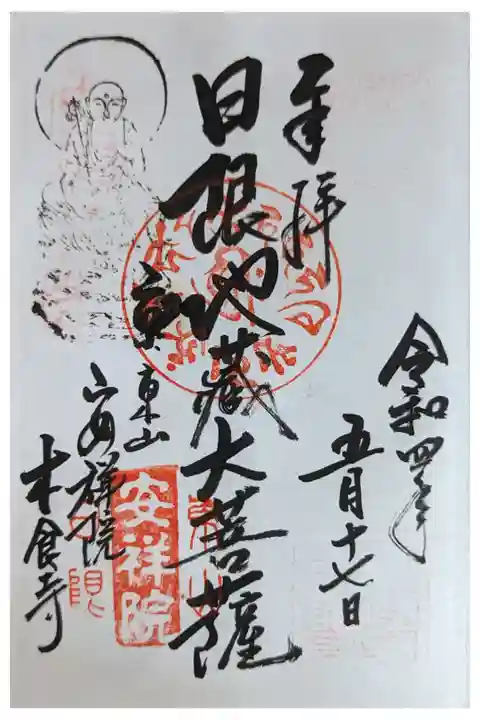 奉拝
令和四年
五月十七日
日限地蔵大菩薩
京東山
安祥院
木食寺
安祥院